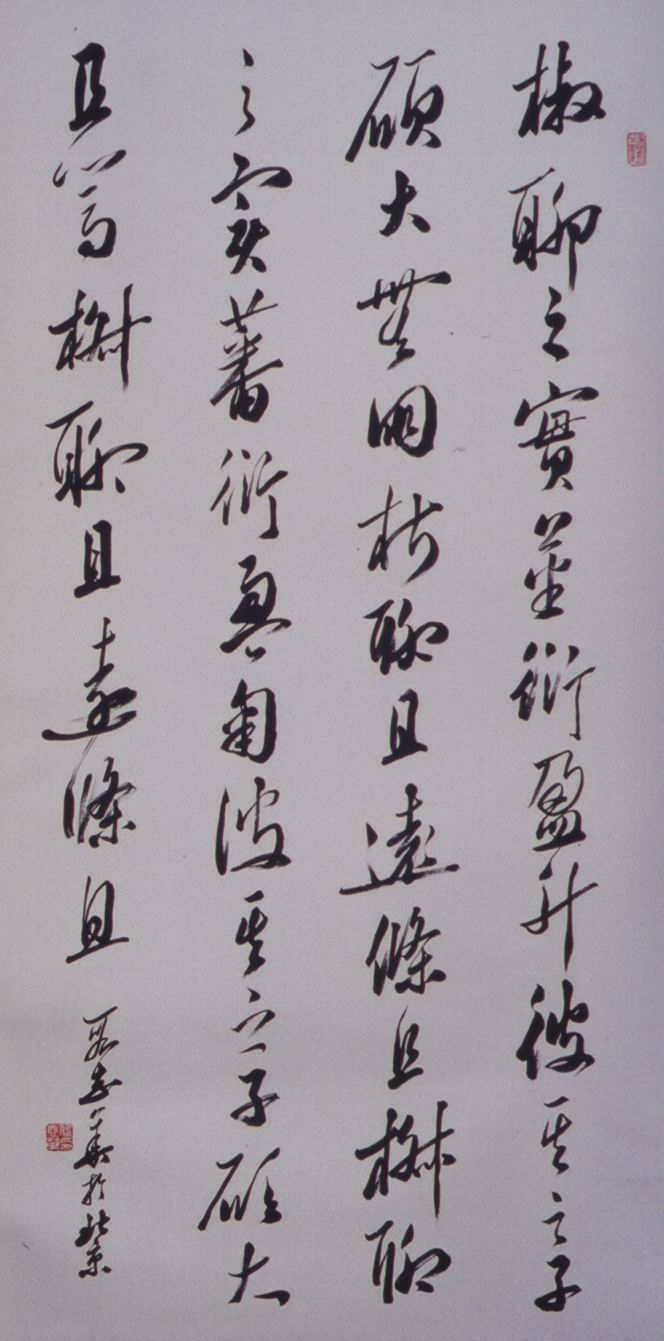 椒聊之實蕃衍盈升彼其之子
碩大無朋椒聊且遠條且椒聊
之實蕃衍盈匊彼其之子碩大
且篤椒聊且遠條且
於北京